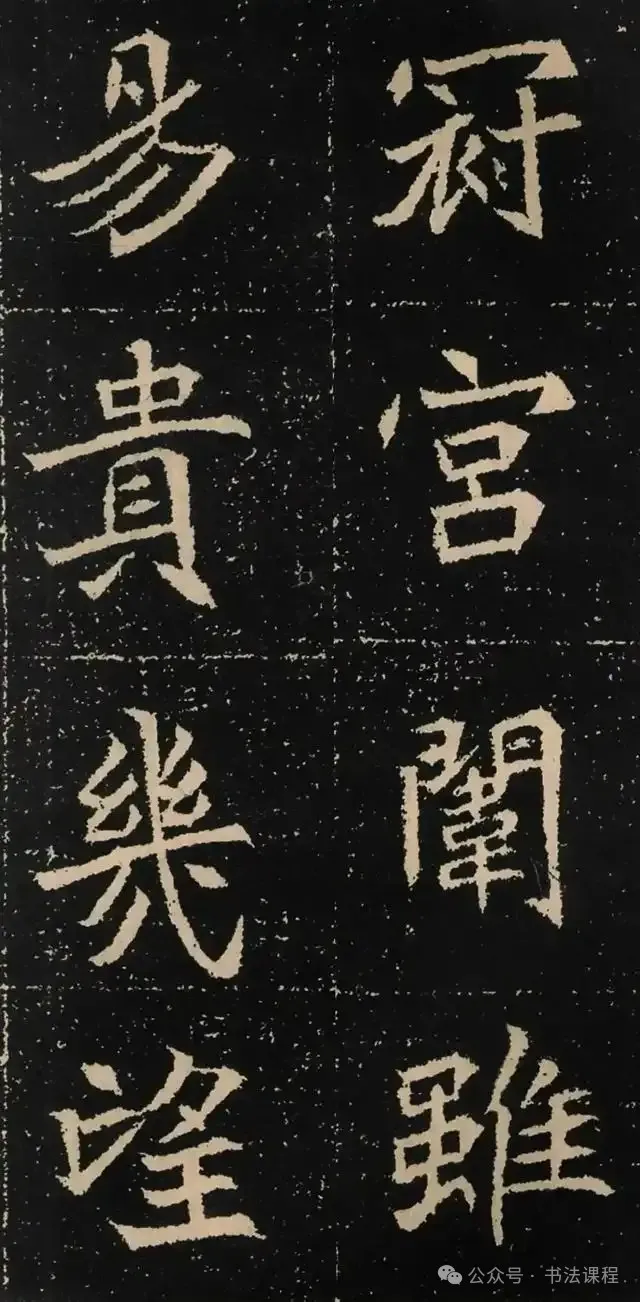 冠宮闈雖
易貴幾望
公众号 · 书法课程